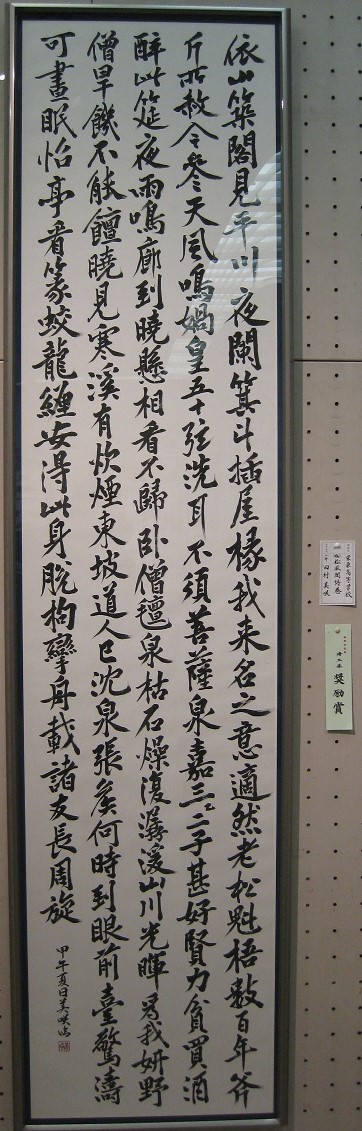 依山築閣見平川夜闌箕斗插屋椽我来名之意適然老松魁梧数百年斧
斤所赦今參天風鳴媧皇五十弦洗耳不須菩薩泉嘉三二子甚好賢力貧買酒
醉此筵夜雨鳴廊到曉懸相看不歸卧僧氊泉枯石燥復潺湲山川光暉為我妍野
僧旱饑不能饘曉見寒溪有炊煙東坡道人已沈泉張侯何時到眼前臺驚濤
可晝眠怡亭看篆蛟龍纏安得此身脫拘攣舟載諸友長周旋
甲午夏日美咲臨
松風閣詩巻
田村美咲
奨励賞